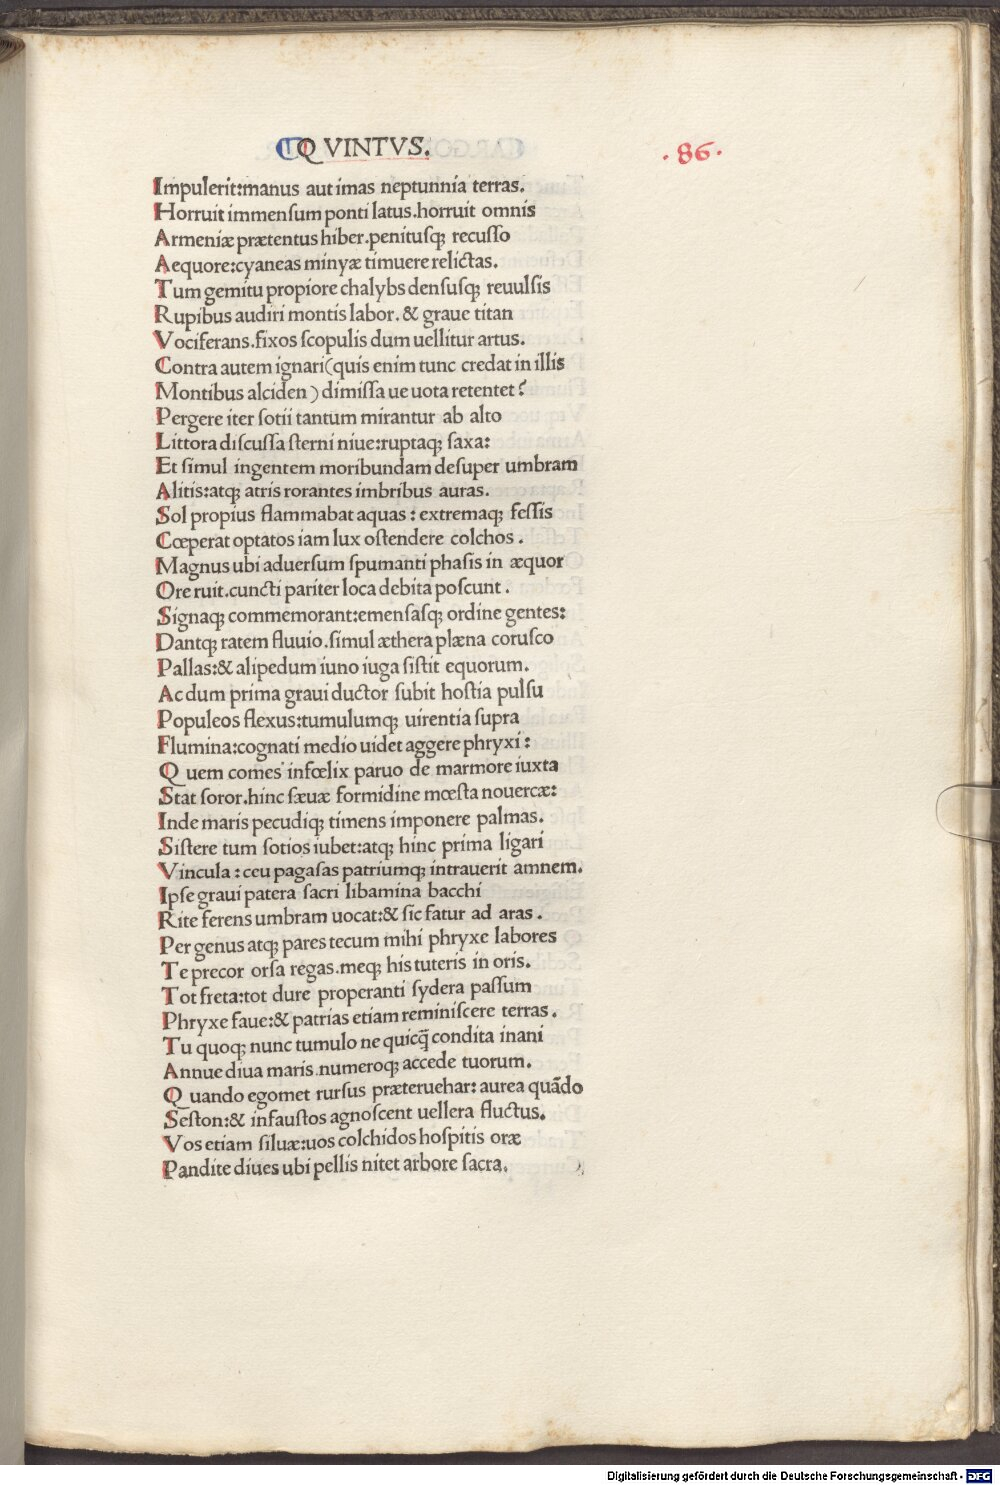 QVINTVS.
.86.
Impulerit:manus aut imas neptunnia terras.
Horruit immenſum ponti latus.horruit omnis
Armeniæ prætentus hiber.penituſq; recuſſo
Aequore:cyaneas minyæ timuere relictas.
Tum gemitu propiore chalybs denſuſq; reuulſis
Rupibus audiri montis labor.& graue titan
Vociferans.fixos ſcopulis dum uellitur artus.
Contra autem ignari(quis enim tunc credat in illis
Montibus alciden) dimiſſa ue uota retentet?
Pergere iter ſotii tantum mirantur ab alto
Littora diſcuſſa ſterni niue:ruptaq; ſaxa:
Et ſimul ingentem moribundam deſuper umbram
Alitis:atq; atris rorantes imbribus auras.
Sol propius flammabat aquas: extremaq; feſſis
Cœperat optatos iam lux oſtendere colchos.
Magnus ubi aduerſum ſpumanti phaſis in æquor
Ore ruit.cuncti pariter loca debita poſcunt.
Signaq; commemorant:emenſaſq; ordine gentes:
Dantq; ratem fluuio.ſimul æthera plæna coruſco
Pallas:& alipedum iuno iuga ſiſtit equorum.
Ac dum prima graui ductor ſubit hoſtia pulſu
Populeos flexus:tumulumq; uirentia ſupra
Flumina:cognati medio uidet aggere phryxi:
Quem comes infœlix paruo de marmore iuxta
Stat ſoror.hinc ſæuæ formidine mœſta nouercæ:
Inde maris pecudiq; timens imponere palmas.
Siſtere tum ſotios iubet:atq; hinc prima ligari
Vincula:ceu pagaſas patriumq; intrauerit amnem.
Ipſe graui patera ſacri libamina bacchi
Rite ferens umbram uocat:& ſic fatur ad aras.
Per genus atq; pares tecum mihi phryxe labores
Te precor orſa regas.meq; his tuteris in oris.
Tot freta:tot dure properanti ſydera paſſum
Phryxe faue:& patrias etiam reminiſcere terras.
Tu quoq; nunc tumulo ne quicq̃ condita inani
Annue diua maris.numeroq; accede tuorum.
Quando egomet rurſus præteruehar:aurea quãdo
Seſton:& infauſtos agnoſcent uellera fluctus.
Vos etiam ſiluæ:uos colchidos hoſpitis oræ
Pandite diues ubi pellis nitet arbore ſacra.
Digitalisierung gefördert durch die Deutsche Forschungsgemeinschaft - DFG